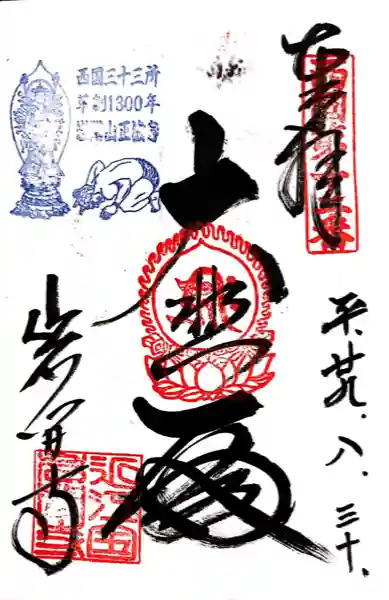 奉拝
平廿九.八.三十.
大悲殿
岩間寺
西国三十三所
草創1300年
岩間山正法寺